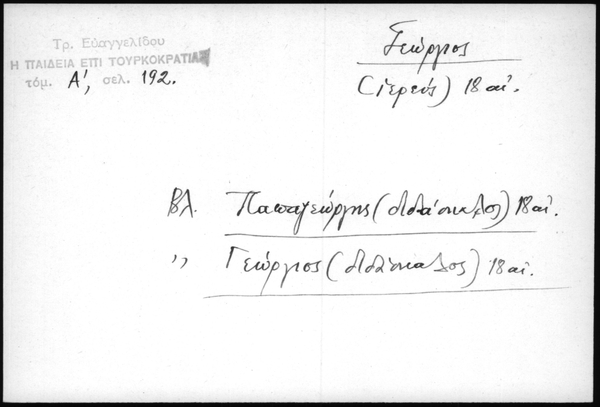 Τρ. Εὐαγγελίδου
Η ΠΑΙΔΕΙΑ ΕΠΙ ΤΟΥΡΚΟΚΡΑΤΙΑΣ
τόμ. Α', σελ. 192.
Γεώργιος
(ἱερεύς) 18 αἰ.
Βλ. Παπαγεώργης (διδάσκαλος) 18 αἰ.
,, Γεώργιος (διδάσκαλος) 18 αἰ.